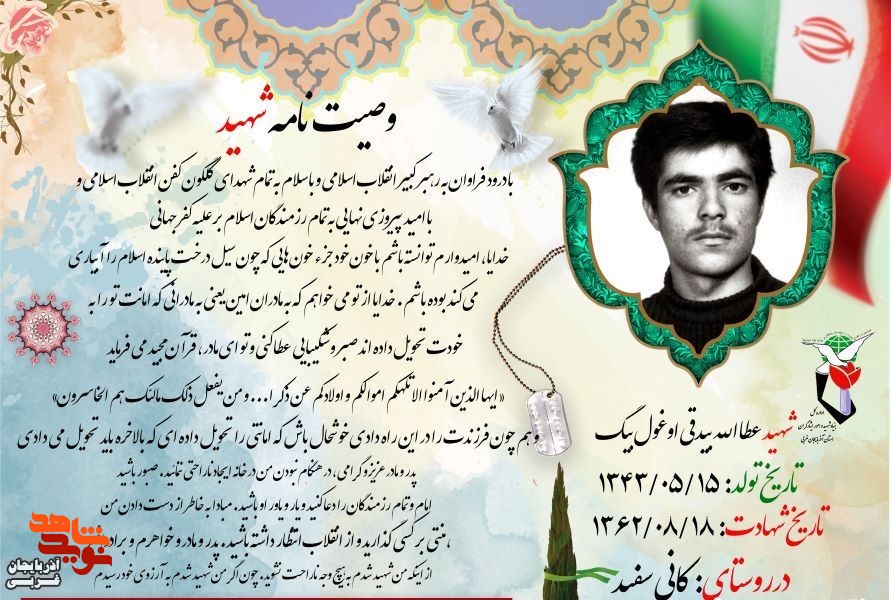 وصیت نامه شهید
با درود فراوان به رهبر کبیر انقلاب اسلامی و با سلام به تمام شهدای گلگون کفن انقلاب اسلامی و
با امید پیروزی نهایی به تمام رزمندگان اسلام بر علیه کفر جهانی
خدایا، امیدوارم توانسته باشم با خون خود جزء خون هایی که چون سیل درخت پاینده اسلام را آبیاری
می کند بوده باشم . خدایا از تو می خواهم که به مادران امین یعنی به مادرانی که امانت تو را به
خودت تحویل داده اند صبر و شکیبایی عطا کنی و تو ای مادر، قرآن مجید می فرماید
« ایها الذین آمنوا لا تلهکم اموالکم و اولادکم عن ذکر ا... و من یفعل ذلک مالنک هم الخاسرون»
وهم چون فرزندت را در این راه دادی خوشحال باش که امانتی را تحویل داده ای که بالاخره باید تحویل می دادی
پدر و مادر عزیز و گرامی، در هنگام نبودن من در خانه ایجاد ناراحتی ننمائید. صبور باشید
امام و تمام رزمندگان را دعا کنید و یار و یاور او باشید. مبادا به خاطر از دست دادن من
، منتی بر کسی گذارید و از انقلاب انتظار داشته باشید. پدر و مادر و خواهرم و براد
از اینکه من شهید شدم به هیچ وجه ناراحت نشوید. چون اگر من شهید شدم به آرزوی خود رسیدم
شهید عطاالله بیدقی اوغول بیگ
تاریخ تولد: ۱۳۴۳/۰۵/۱۵
تاریخ شهادت: ۱۳۶۲/۰۸/۱۸
در روستای: کانی سفید
اداره کل
بنیاد شهید و امور ایثارگران
استان آذربایجان غربی
نوید شاهد
آذربایجان
غربی